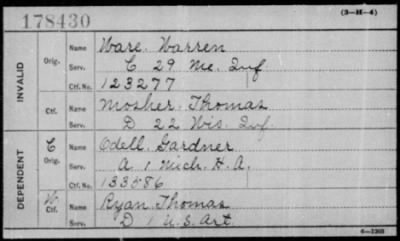 178430
(3-H-4)
INVALID
Orig.
Name Ware. Warren
Serv. C 29 Me. Inf.
Ctf. No. 123277
Ctf.
Name Mosher. Thomas
Serv. D 22 Wis. Inf.
DEPENDENT
Orig.
Name Odell. Gardner
Serv. A 1 Mich. H. A.
Ctf. No. 133586
W
Ctf.
Name Ryan Thomas
Serv. D 1 U.S. Art.
6-2368